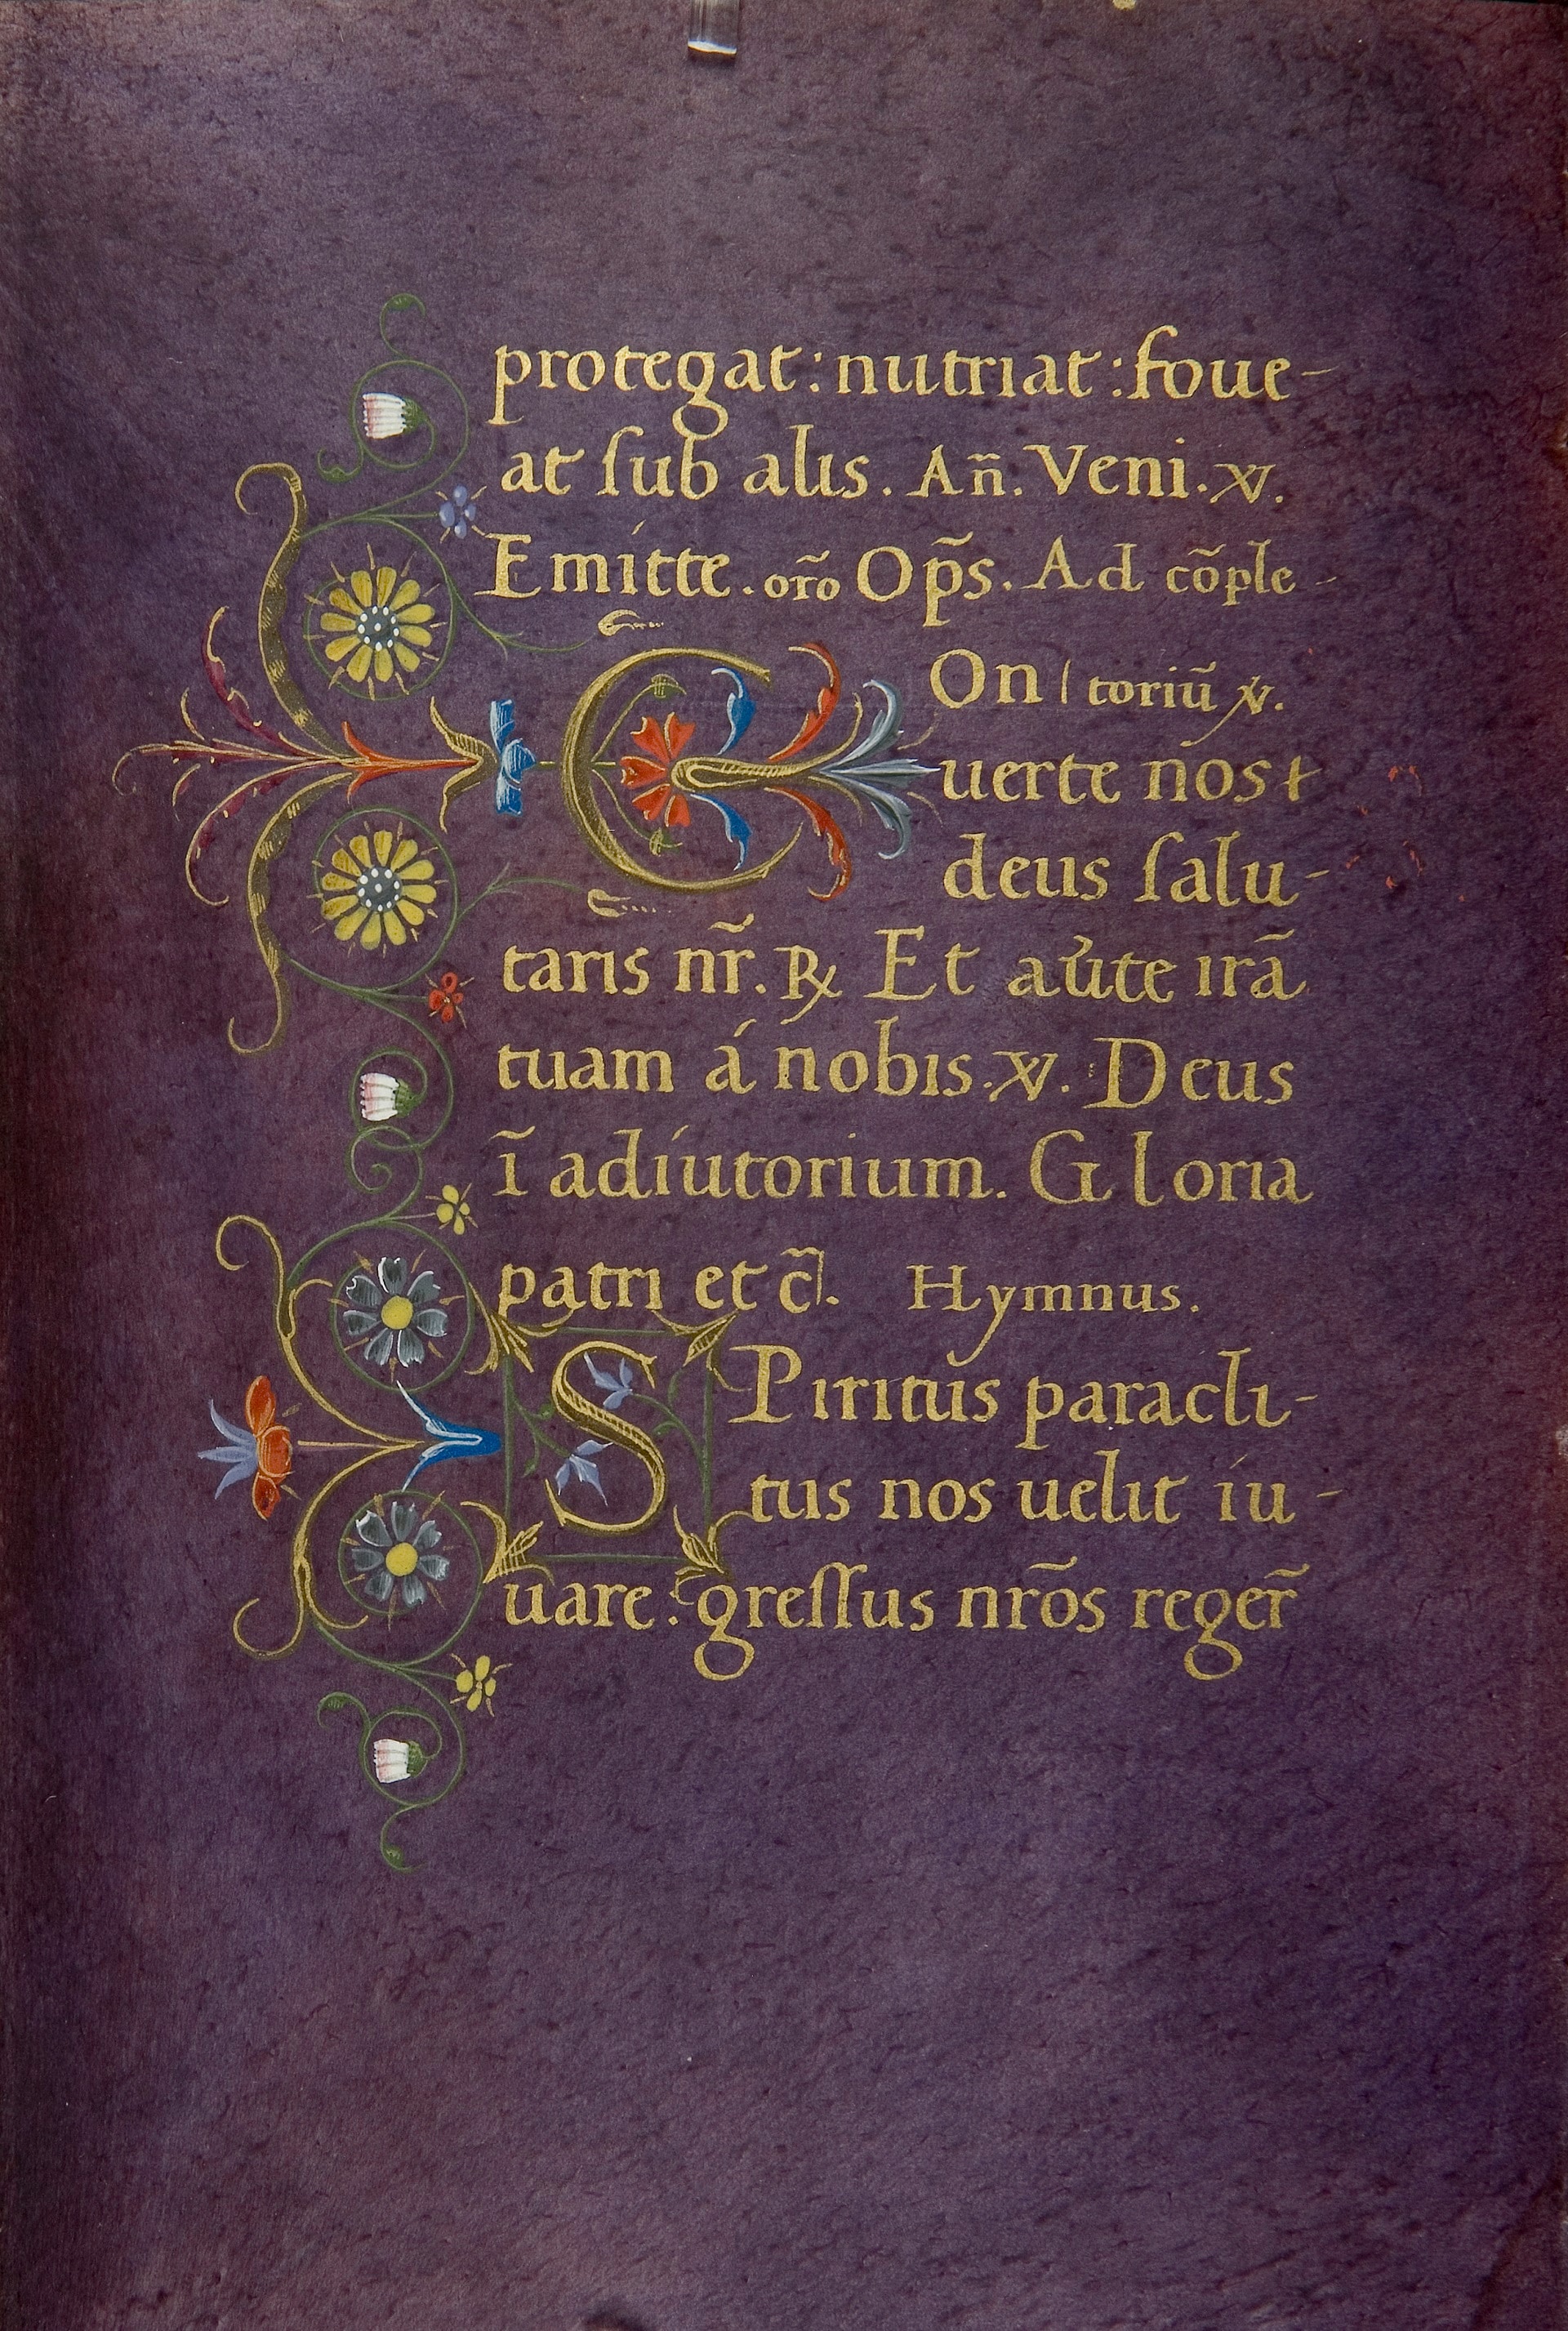 protegat: nutriat: foue-
at ſub alis. An̄. Veni. ℣.
Emítte. orõ Op̃s. Ad cõple-
COn | toriũ ℣.
uerte nós +
deus ſalu-
taris nr̃. ℞ Et au̾te irã
tuam á nobis. ℣. Deus
ĩ adíutorium. Gloria
patri et c̃. Hymnus.
SPiritus paracli-
tus nos uelit íu-
uare: greſſus nrõs reger̃